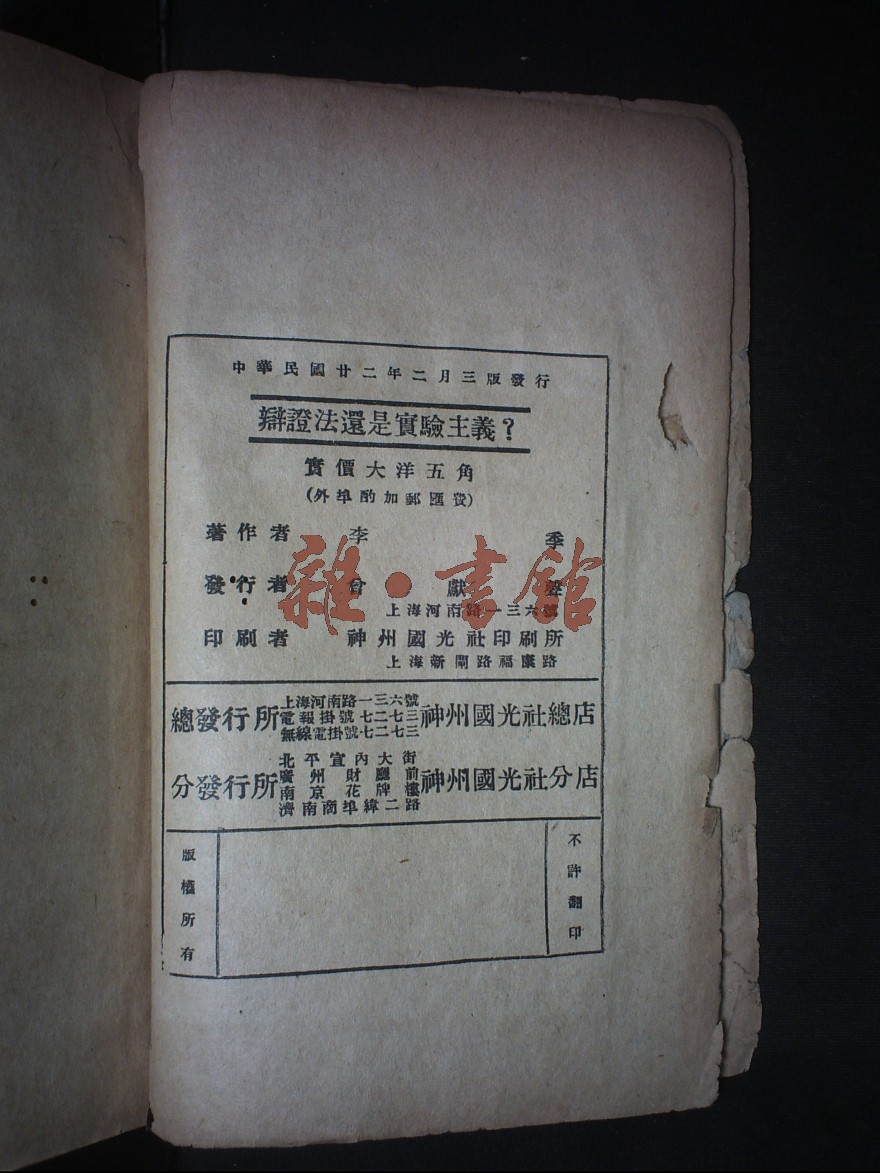 中華民國廿二年二月三版發行
辯證法還是實驗主義？
實價大洋五角
（外埠酌加郵匯費）
著作者 李季
發行者 曾獻聲
上海河南路一三六號
印刷者 神州國光社印刷所
上海新閘路福康路
總發行所 上海河南路一三六號 電報掛號七二七三 無線電掛號七二七三 神州國光社總店
分發行所 北平宣內大街 廣州財廳前 南京花牌樓 濟南商埠緯二路 神州國光社分店
版權所有
不許翻印
雜·書館